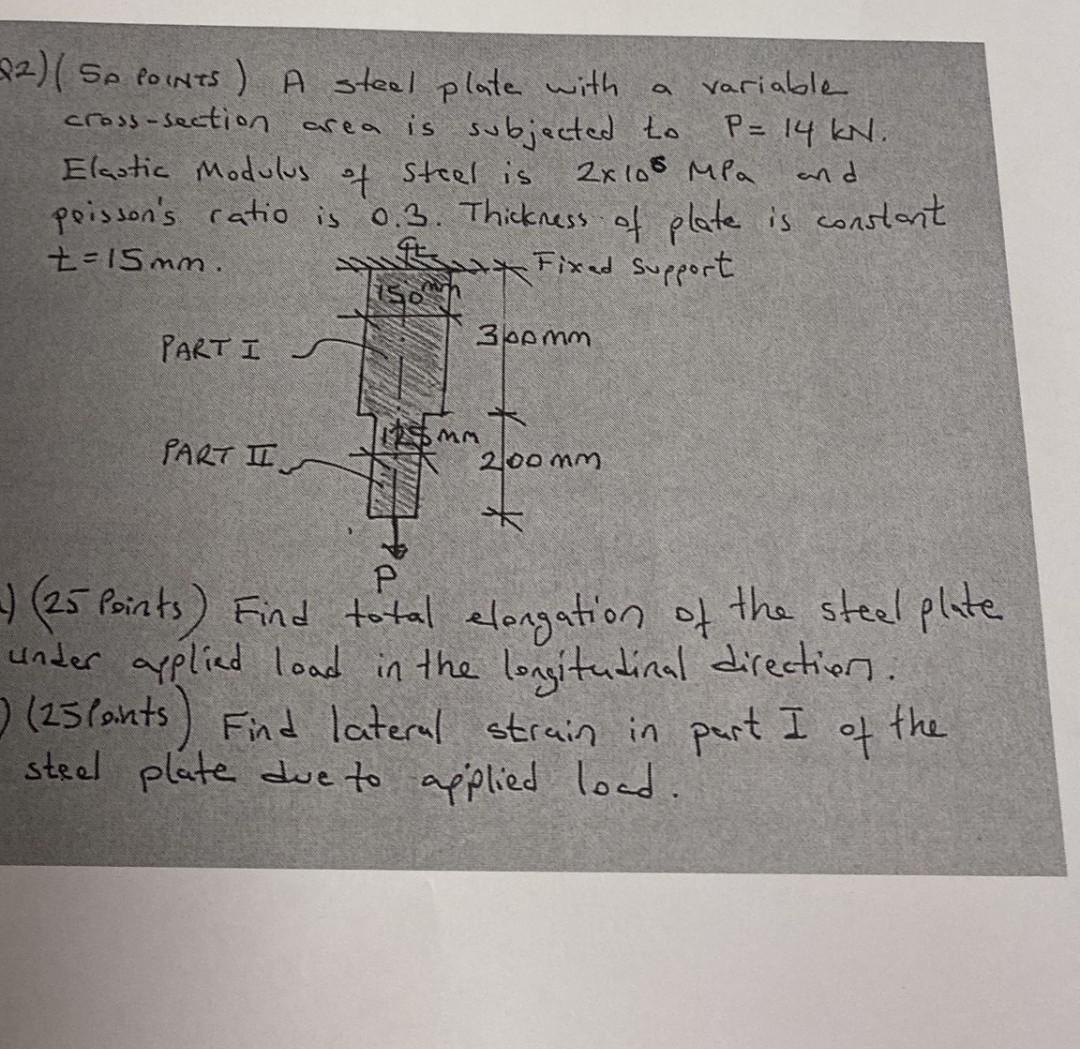 Q2) (50 POINTS) A steel plate with a variable
cross-section area is subjected to P= 14 kN.
Elastic Modulus of steel is 2x10⁵ MPa and
poisson's ratio is 0.3. Thickness of plate is constant
t=15mm.
Fixed Support
150mm
300mm
PART I
125mm
PART II
200mm
P
) (25 Points) Find total elongation of the steel plate
under applied load in the longitudinal direction.
) (25 Points) Find lateral strain in part I of the
steel plate due to applied load.